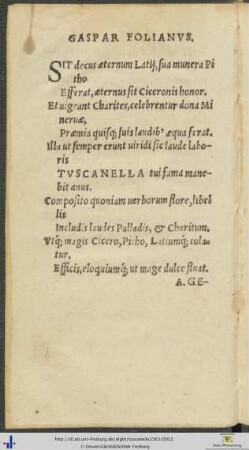 GASPAR FOLIANVS.
SIT decus æternum Latij, sua munera Pi
tho
Efferat, æternus sit Ciceronis honor.
Et uigrant Charites, celebrentur dona Mi
neruæ,
Præmia quisq; suis laudib' æqua ferat.
Illa ut semper erunt uiridi sic laude labo-
ris
TVSCANELLA tui fama mane-
bit anus.
Composito quoniam uerborum flore, libel
lis
Includis laudes Palladis, & Charitum.
Vtq; magis Cicero, Pitho, Latiumq; colan
tur,
Efficis, eloquiumq; ut mage dulce fluat.
A. GE-
http://dl.ub.uni-freiburg.de/diglit/toscanella1563/0012
© Universitätsbibliothek Freiburg